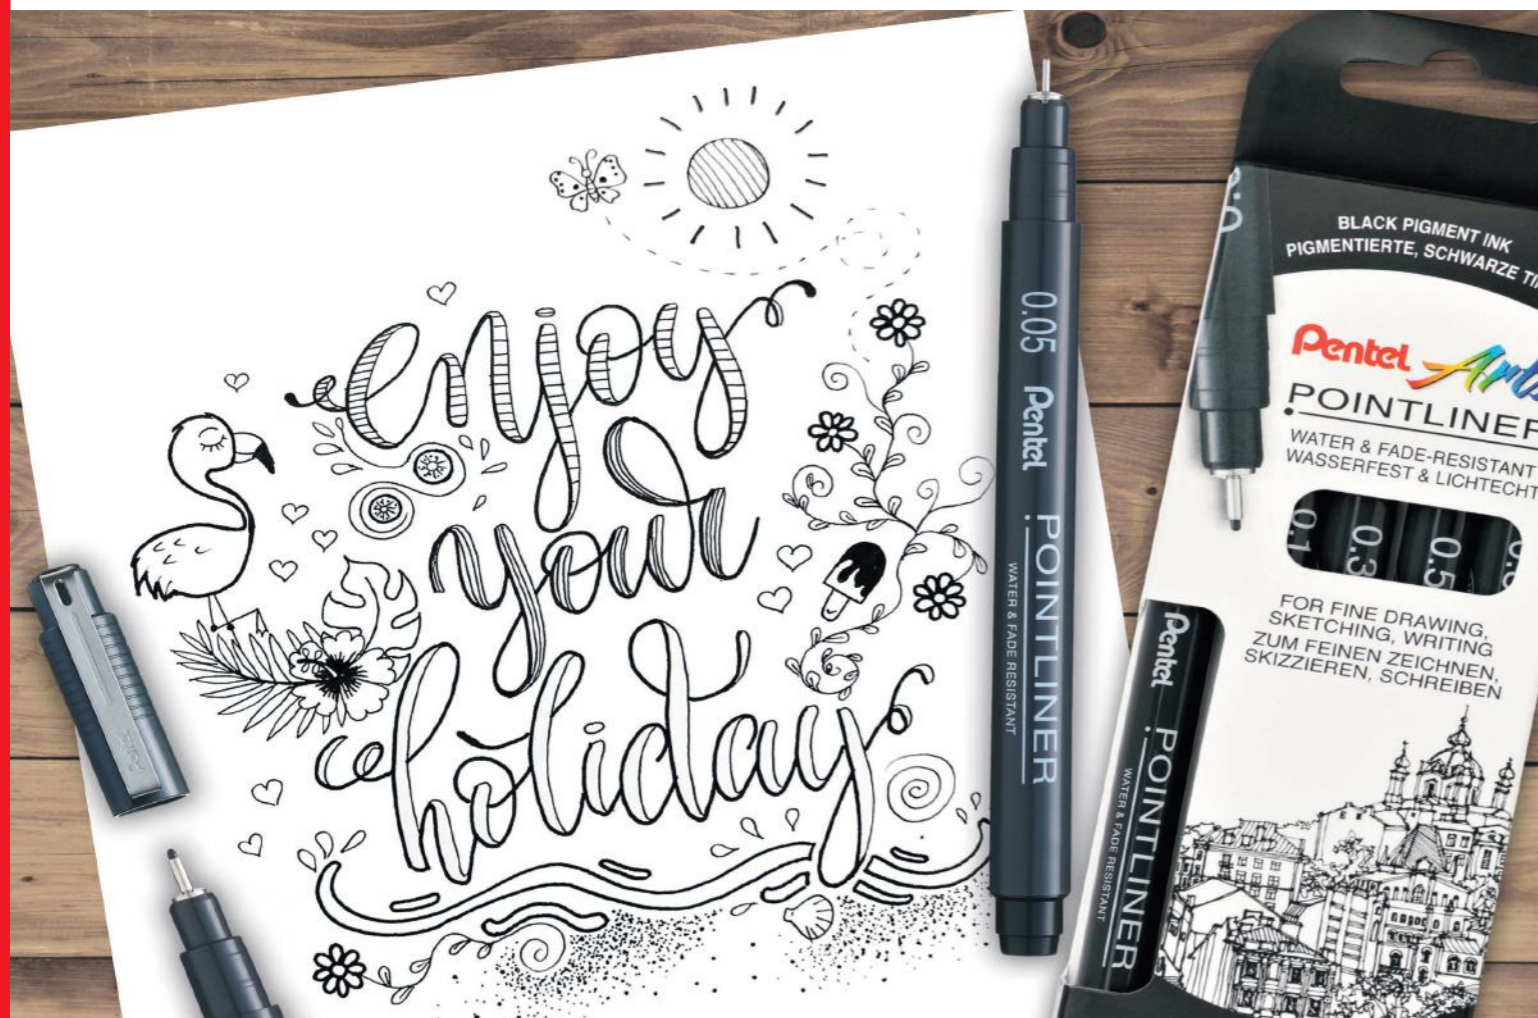 enjoy
your
holiday
0.05 Pentel POINTLINER
WATER & FADE RESISTANT
BLACK PIGMENT INK
PIGMENTIERTE, SCHWARZE
Pentel Arts
POINTLINER
WATER & FADE-RESISTANT
WASSERFEST & LICHTECHT
0.1 0.3 0.5
FOR FINE DRAWING,
SKETCHING, WRITING
ZUM FEINEN ZEICHNEN,
SKIZZIEREN, SCHREIBEN
Pentel POINTLINER
WATER & FADE RESISTANT
Pentel